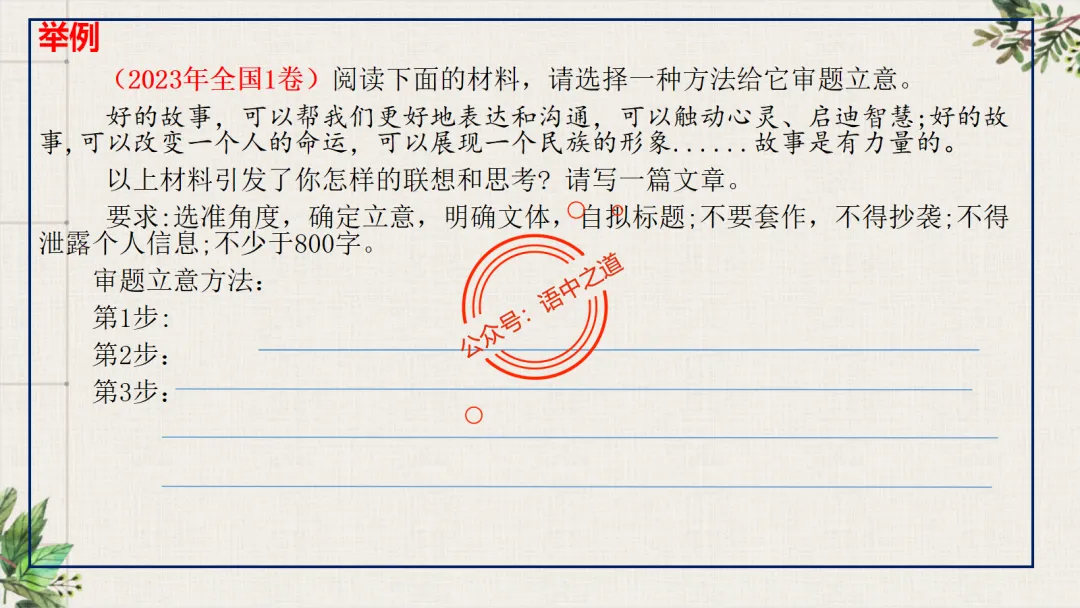 举例
（2023年全国1卷）阅读下面的材料，请选择一种方法给它审题立意。
好的故事，可以帮我们更好地表达和沟通，可以触动心灵、启迪智慧;好的故
事,可以改变一个人的命运，可以展现一个民族的形象......故事是有力量的。
以上材料引发了你怎样的联想和思考？请写一篇文章。
要求:选准角度，确定立意，明确文体，自拟标题;不要套作，不得抄袭;不得
泄露个人信息;不少于800字。
审题立意方法：
第1步:
第2步：
第3步：
公众号：语中之道